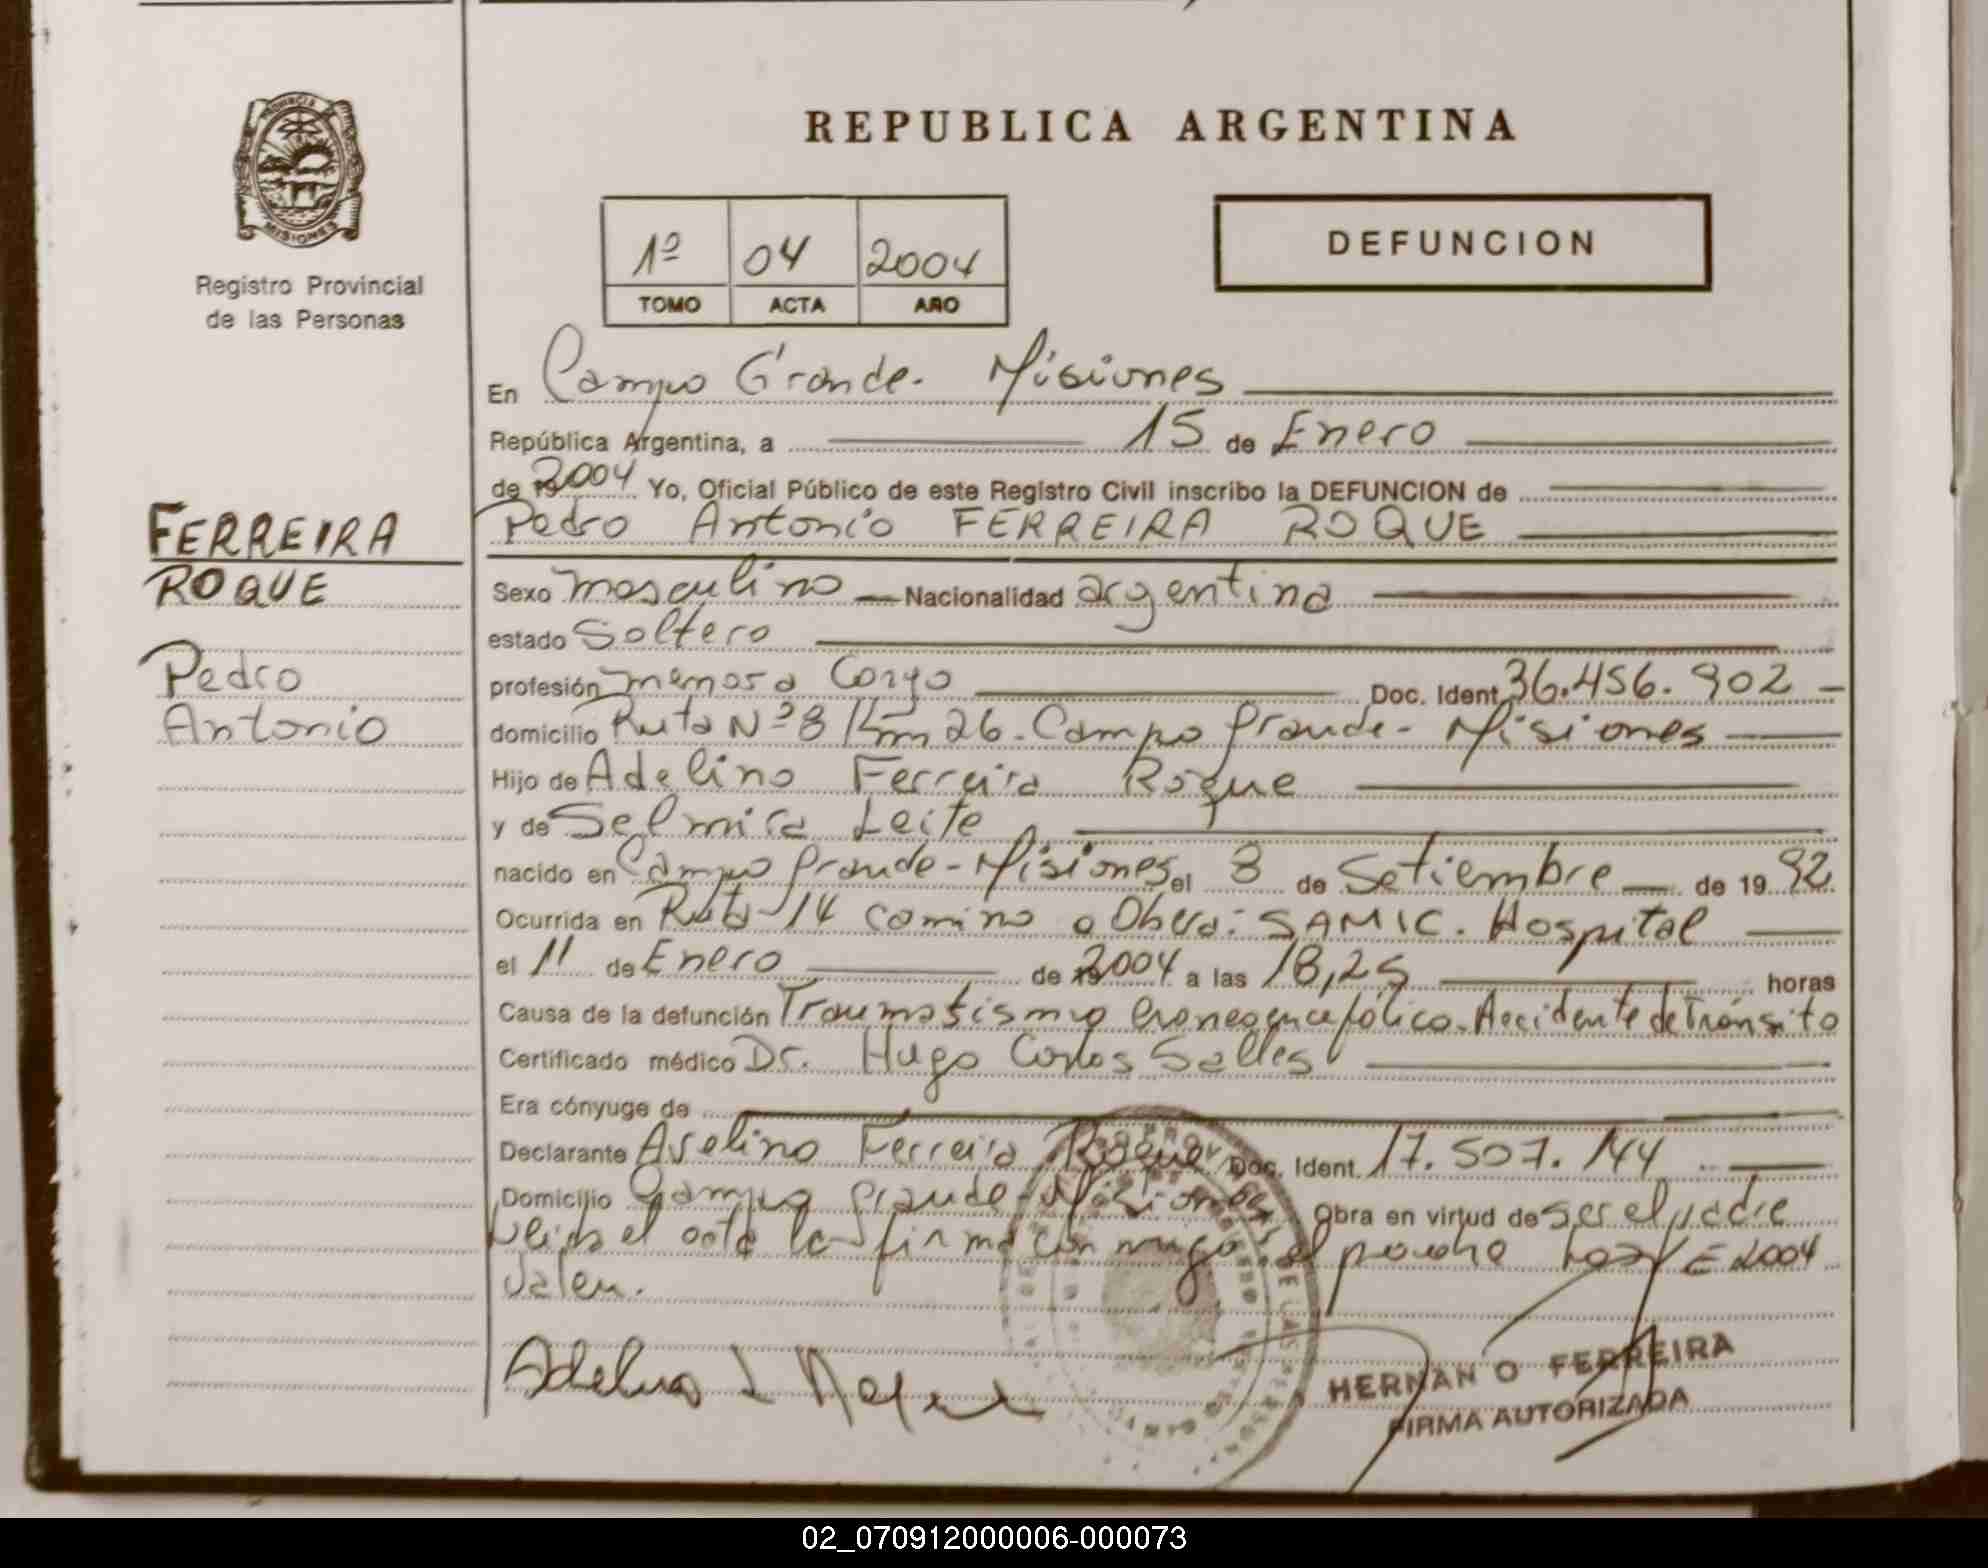 REPUBLICA ARGENTINA
MISIONES
Registro Provincial
de las Personas
1º 04 2004
TOMO ACTA AÑO
DEFUNCION
En Campo Grande. Misiones
República Argentina, a 15 de Enero
de 2004 Yo, Oficial Público de este Registro Civil inscribo la DEFUNCION de
Pedro Antonio FERREIRA ROQUE
FERREIRA
ROQUE
Pedro
Antonio
Sexo masculino Nacionalidad argentina
estado Soltero
profesión menor a Cargo Doc. Ident. 36.456.902
domicilio Ruta Nº 8 Km 26. Campo Grande - Misiones
Hijo de Adelino Ferreira Roque
y de Selmira Leite
nacido en Campo Grande - Misiones el 8 de Setiembre de 19 92
Ocurrida en Ruta 14 camino a Oberá. SAMIC. Hospital
el 11 de Enero de 2004 a las 18,25 horas
Causa de la defunción Traumatismo Craneoencefálico. Accidente de Tránsito
Certificado médico Dr. Hugo Carlos Salles
Era cónyuge de
Declarante Avelino Ferreira Roque Doc. Ident. 17.507.144
Domicilio Campo Grande - Misiones Obra en virtud de ser el padre
el acta la firma con migo el 2004
Valen.
HERNAN O FERREIRA
FIRMA AUTORIZADA
02_070912000006-000073